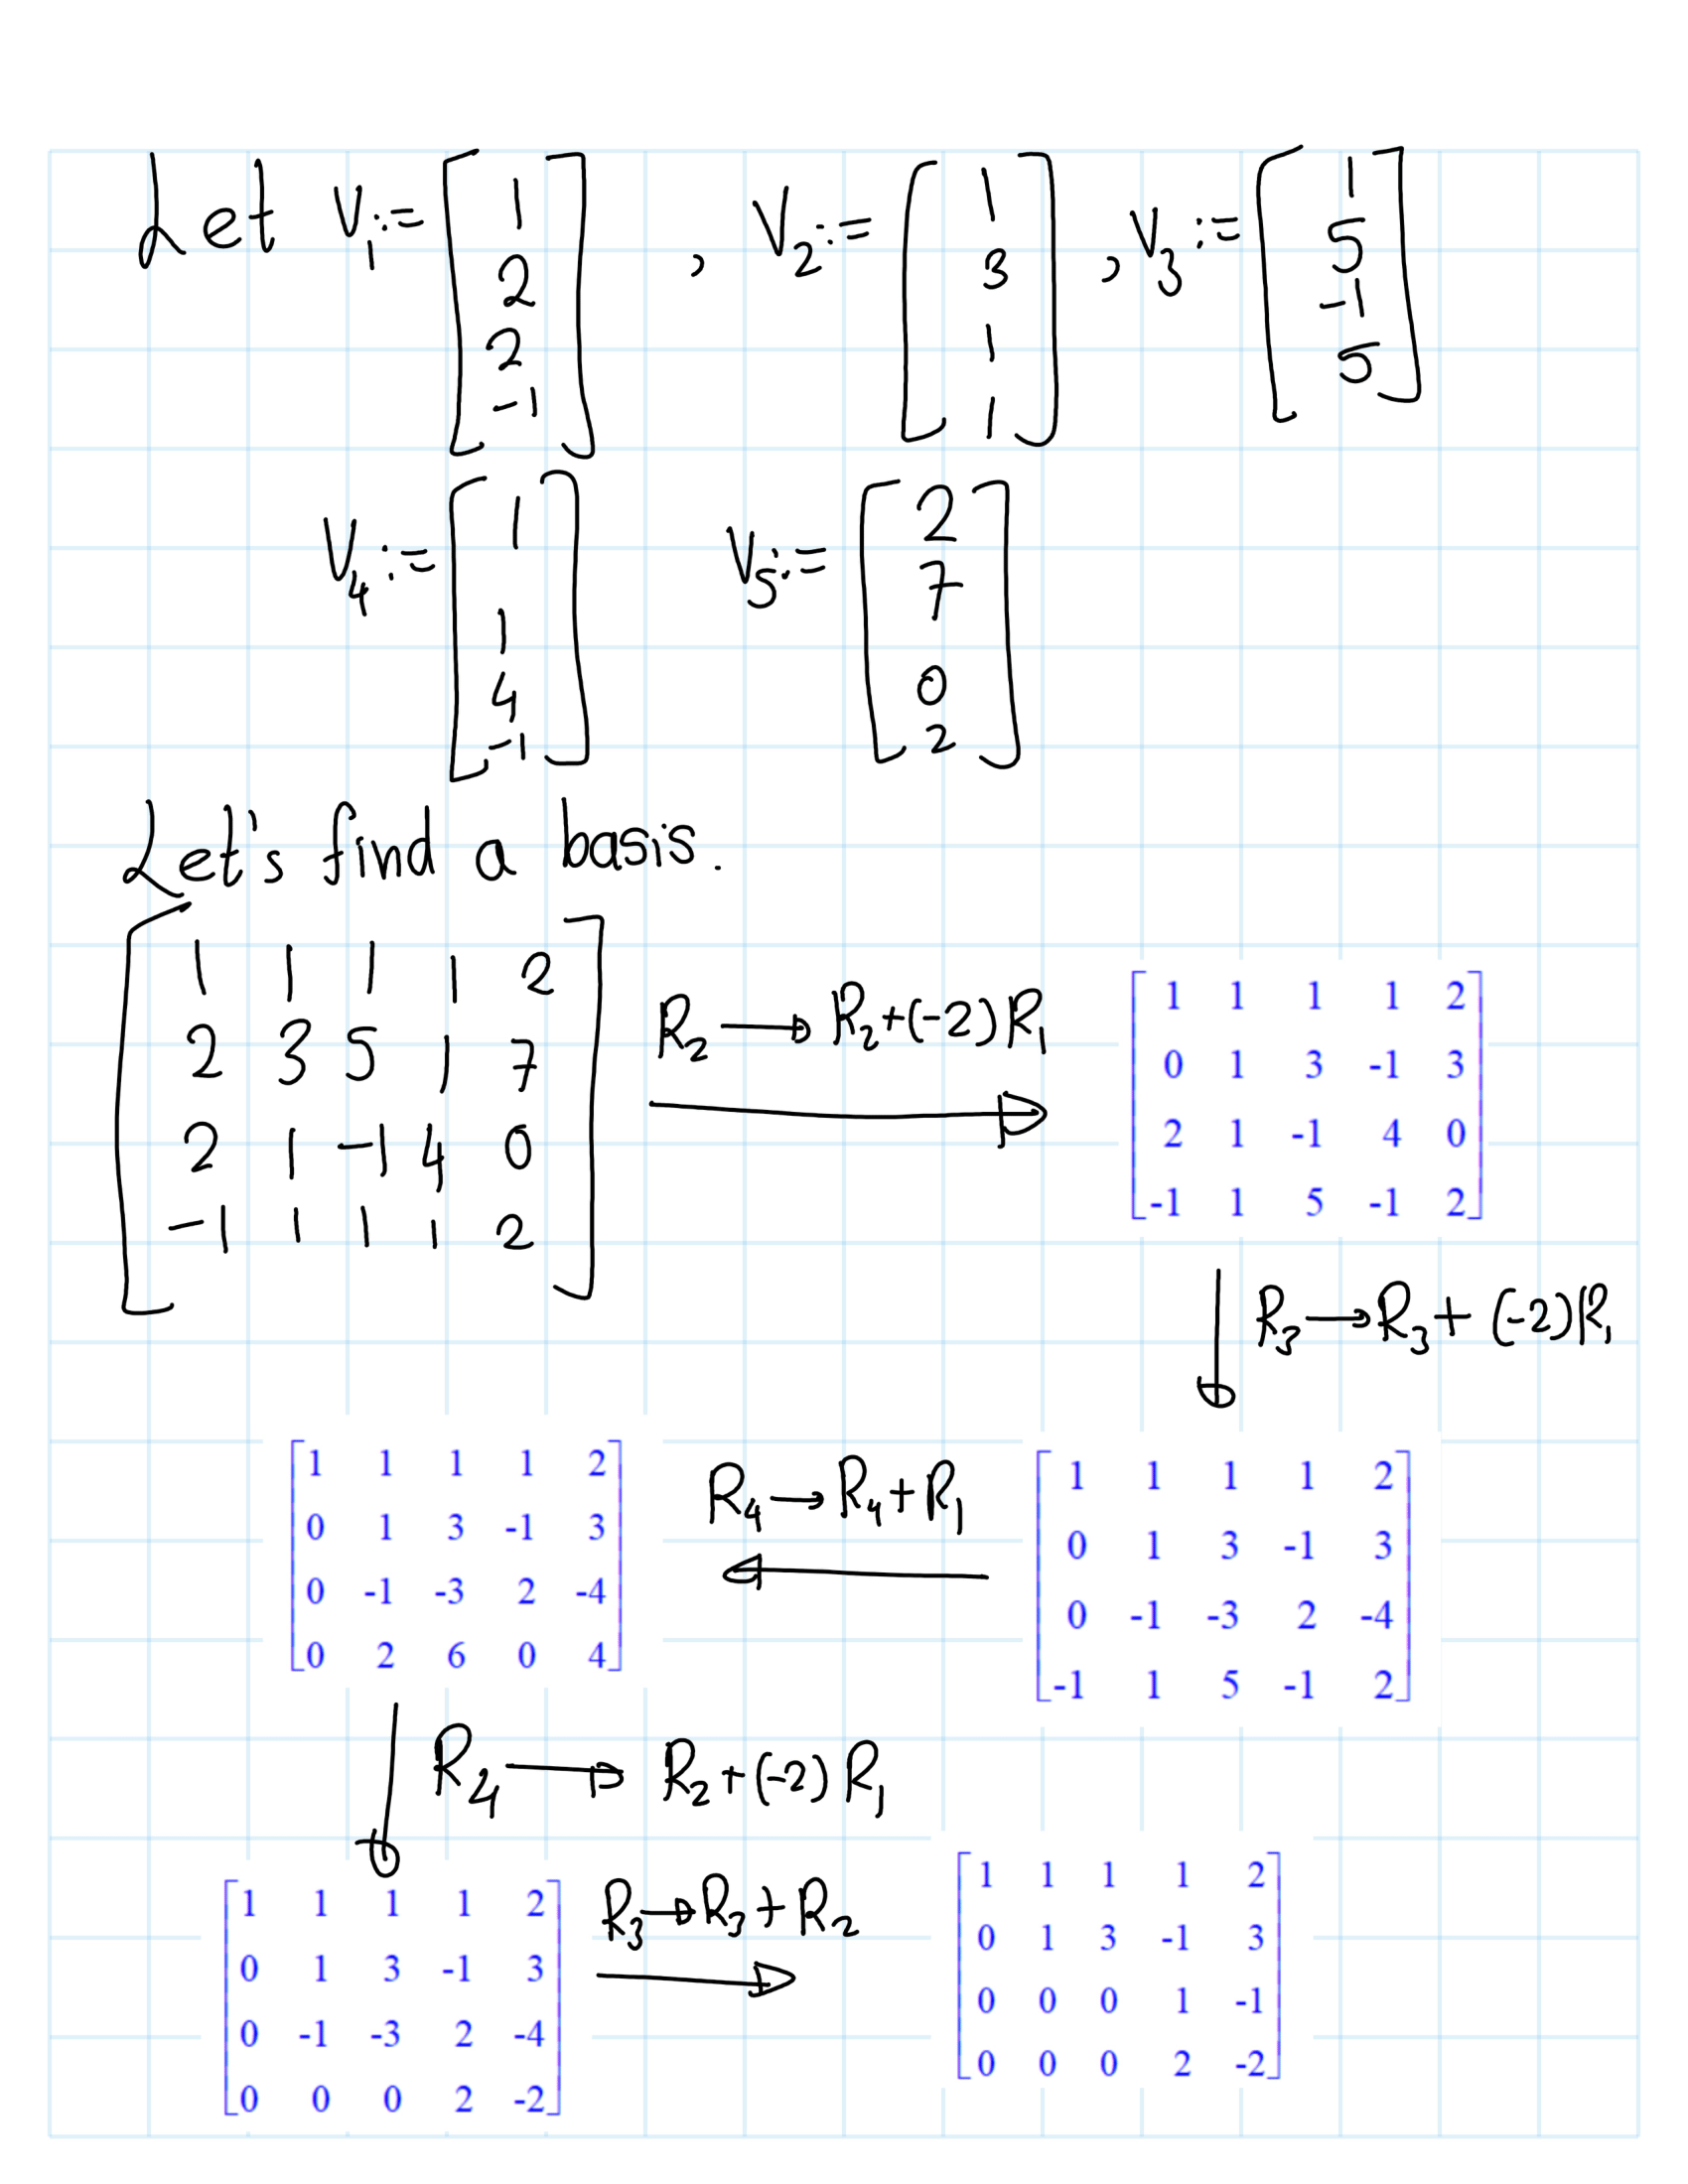 Let V₁:= [1 2 2 -1], V₂:= [1 3 1 1], V₃:= [1 5 -1 5]
V₄:= [1 1 4 -1] V₅:= [2 7 0 2]
Let's find a basis.
[1 1 1 1 2
2 3 5 1 7
2 1 -1 4 0
-1 1 1 1 2]
R₂ → R₂+(-2)R₁
[1 1 1 1 2
0 1 3 -1 3
2 1 -1 4 0
-1 1 5 -1 2]
R₃ → R₃ + (-2)R₁
[1 1 1 1 2
0 1 3 -1 3
0 -1 -3 2 -4
-1 1 5 -1 2]
R₄ → R₄+R₁
[1 1 1 1 2
0 1 3 -1 3
0 -1 -3 2 -4
0 2 6 0 4]
R₄ → R₂+(-2)R₁
[1 1 1 1 2
0 1 3 -1 3
0 -1 -3 2 -4
0 0 0 2 -2]
R₃ → R₃+R₂
[1 1 1 1 2
0 1 3 -1 3
0 0 0 1 -1
0 0 0 2 -2]